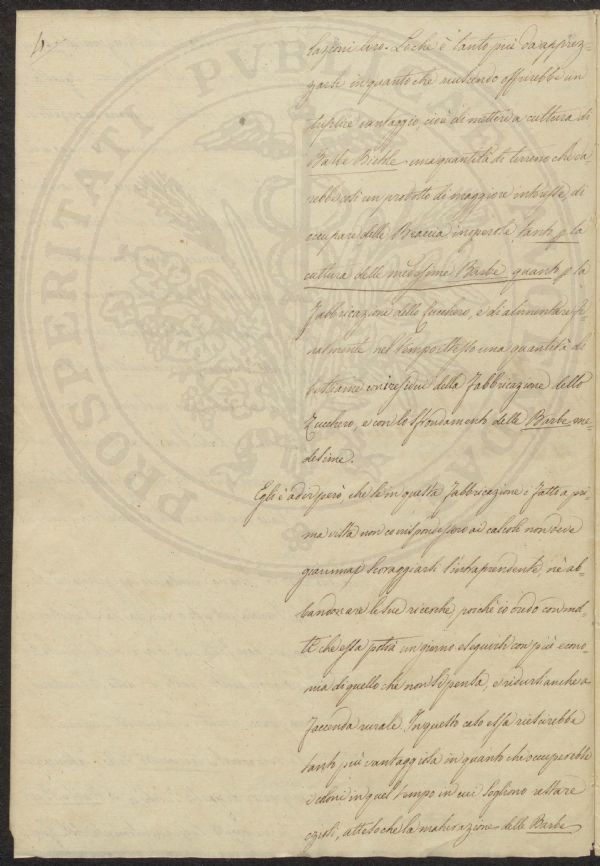 lasconi loro. Loché è tanto più da apprez-
zarsi in quanto che riuscendo offrirebbe un
triplice vantaggio, cioè di mettere a cultura di
Barbe Bietole una quantità di terreno che da-
rebbe così un prodotto di maggiore interesse, di
occupare delle Braccia inoperose tanto p la
cultura delle medesime Barbe quanto p la
Fabbricazione dello Zucchero, e di alimentare fi-
nalmente nel tempo stesso una quantità di
bestiame coi residui della Fabbricazione dello
Zucchero, e con lo sfrondamento delle Barbe me-
desime.
Egli è a dir però che se in questa Fabbricazione i fatti a pri-
ma vista non corrispondessero ai calcoli non deve
giammai scoraggiarsi l'intraprendente, nè ab-
bandonare le sue ricerche, poichè io credo con mol-
ti che essa potrà un giorno eseguirsi con più econo-
mia di quello che non si pensa, e ridursi anche a
faccenda rurale. In questo caso essa riescirebbe
tanto più vantaggiosa in quanto che occuperebbe
i coloni in quel tempo in cui sogliono restare
oziosi, atteso che la maturazione delle Barbe
PROSPERITATI PVBLICAE